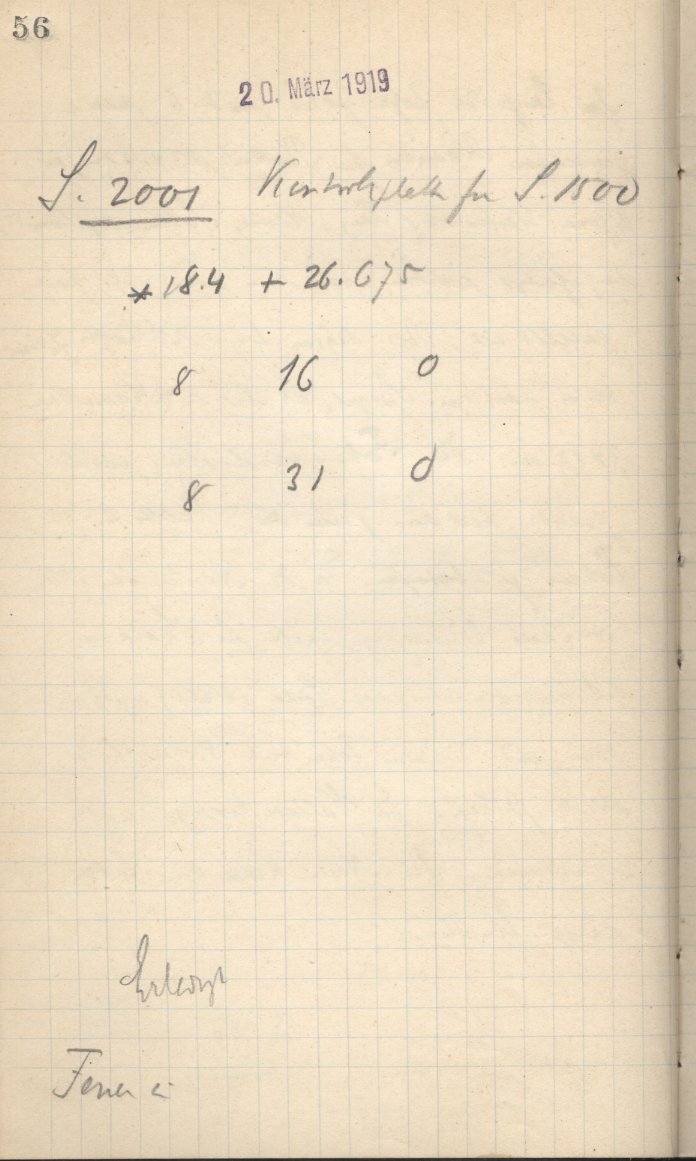 56
20. März 1919
S. 2001 Kontrollplatte für S. 1500
* 18.4 + 26.675
8 16 0
8 31 0
Erledigt